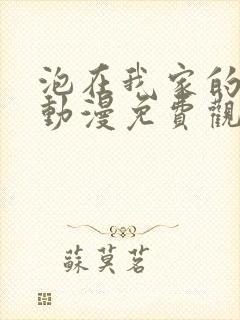 泡在我家的
動漫免費觀
蘇莫茗